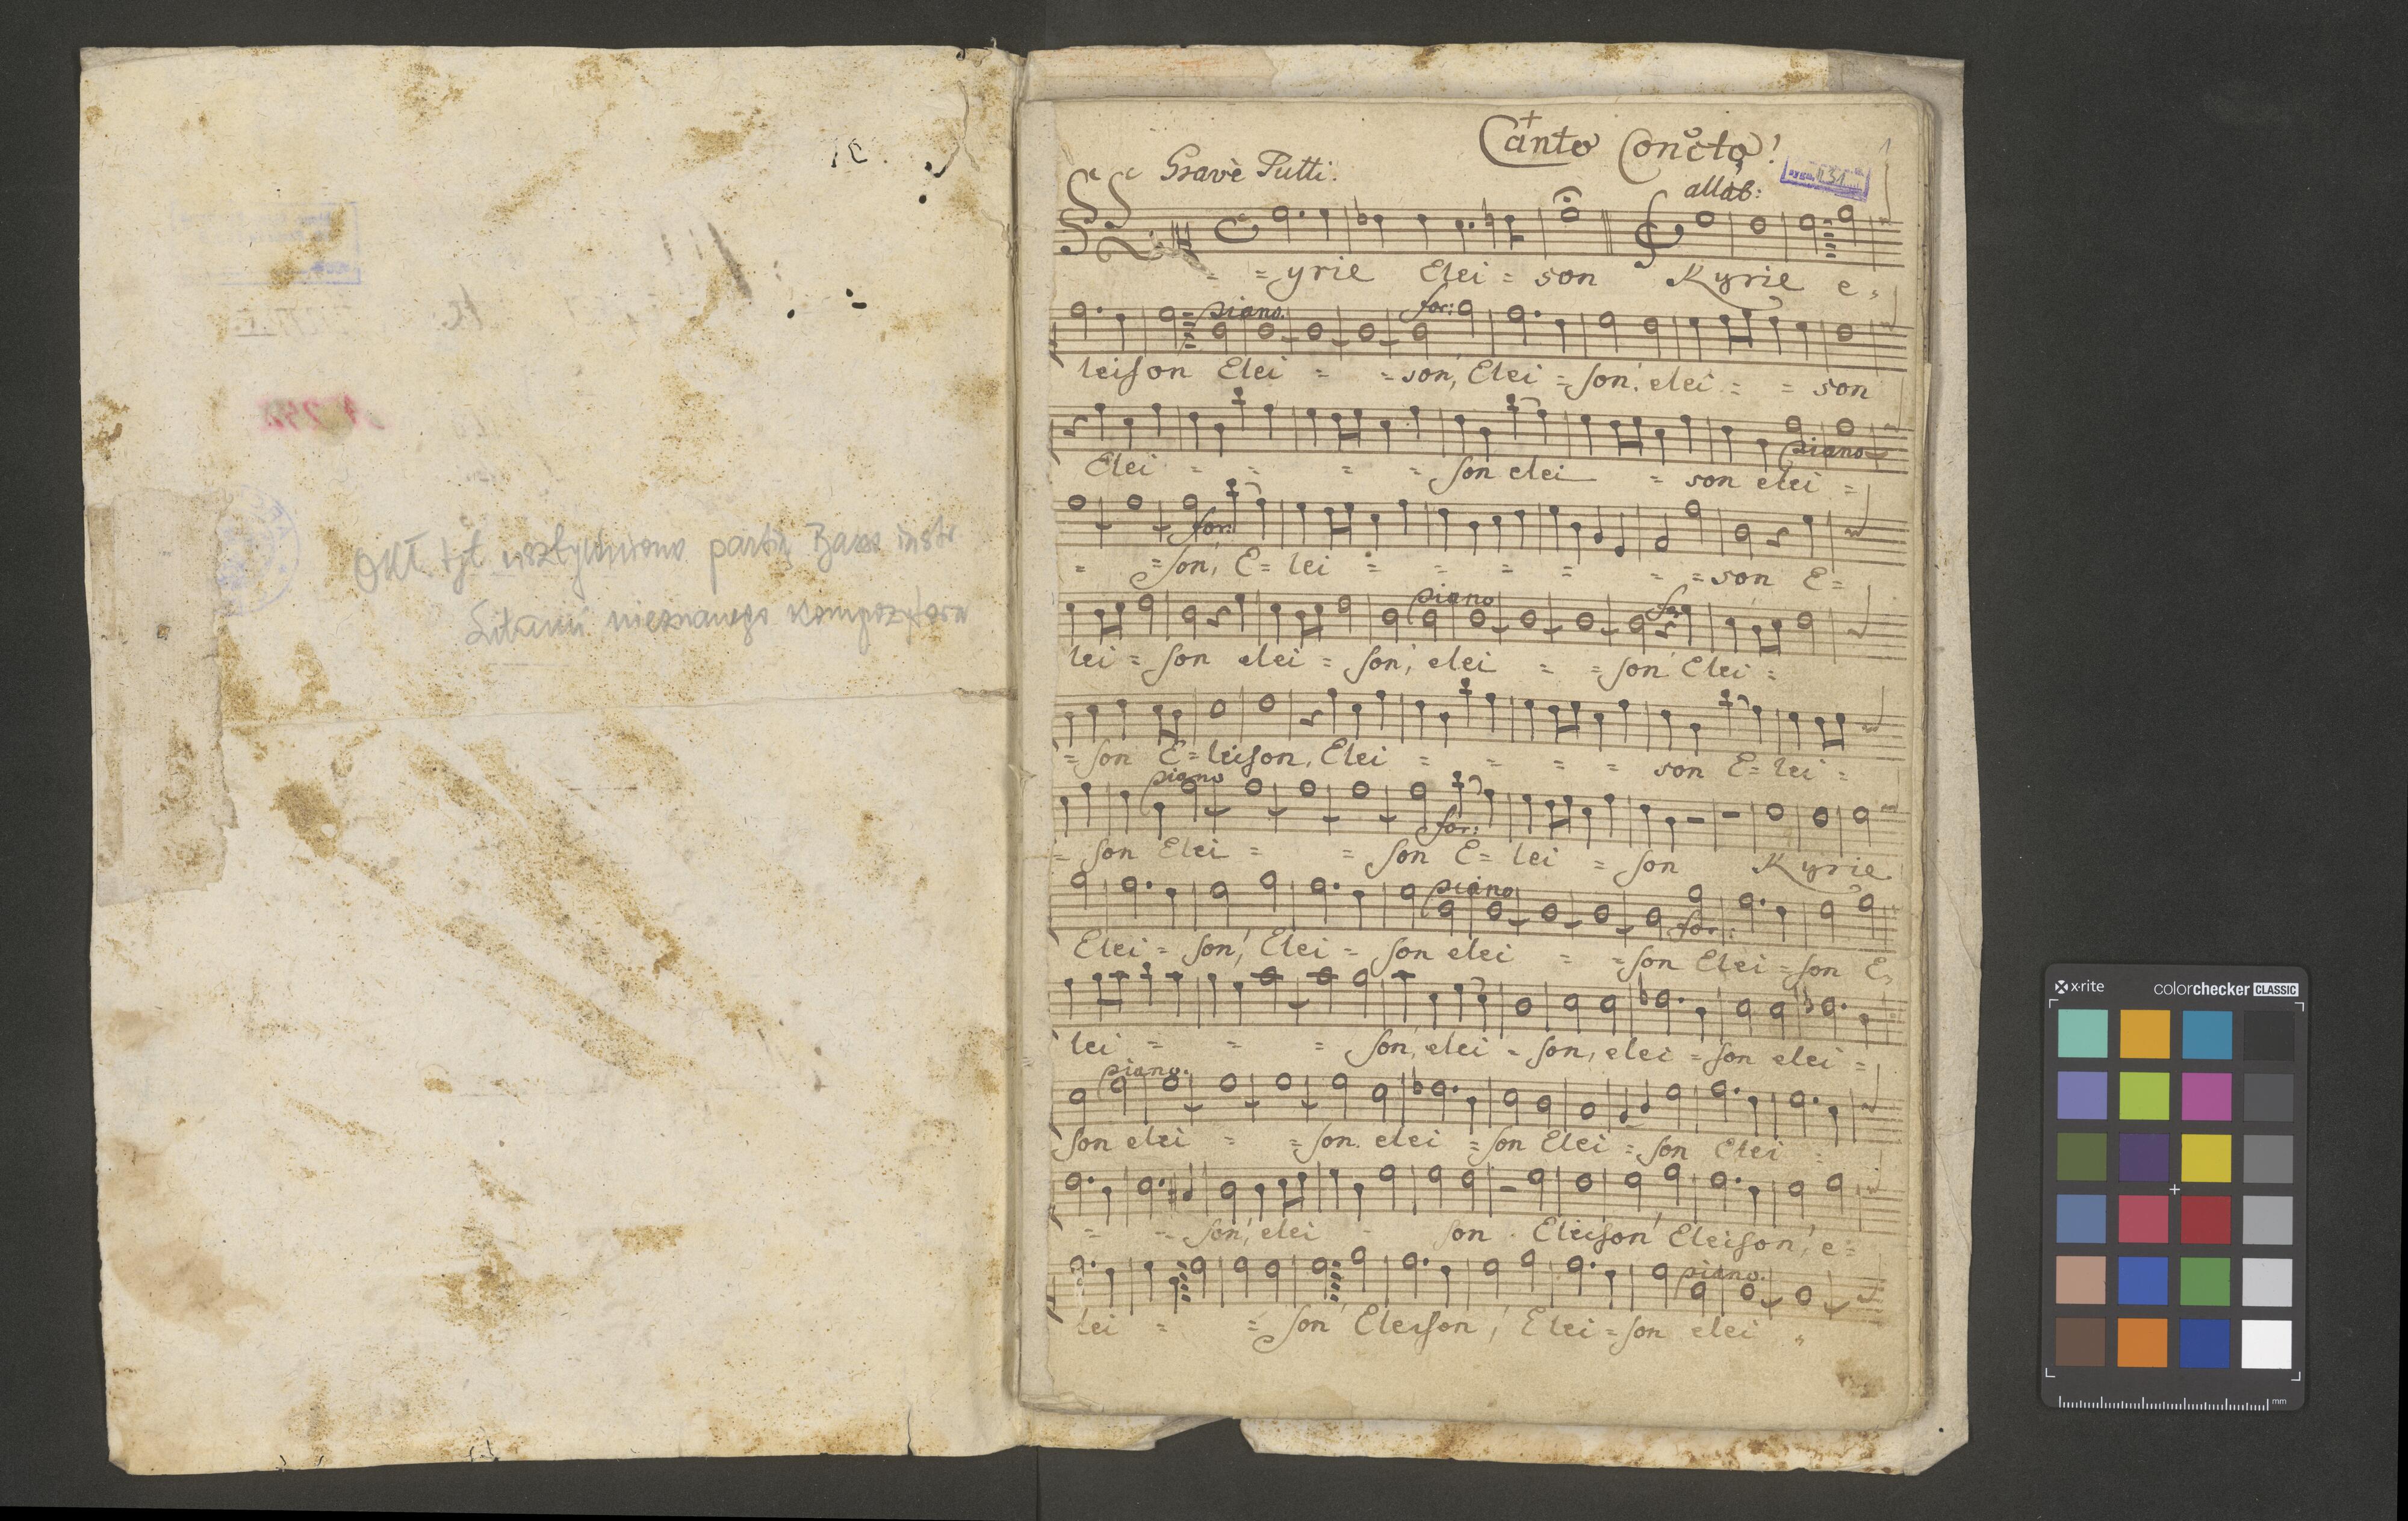 1C.
Okł. tyt. usztywniono partią Basso instr.
Litanii nieznanego kompozytora
Canto Conc̊to!
1
Gravè Tutti.
allab:
431
= =yrie Elei = son Kyrie e=
piano. for:
leison Elei = =son, Elei =son, elei = = son
Elei = = = = son elei = son elei =
piano
= =son, E= lei = = = = = =son E=
for:
piano for:
lei = son elei = son, elei = =son Elei =
=son E=leison, Elei = = = = son E= lei =
piano
= son Elei = = son E= lei = son Kyrie
for:
piano
Elei = son, Elei = son elei = =son Elei =son E=
for:
lei = = = son, elei = son, elei =son elei =
piano.
son elei = =son. elei =son Elei =son Elei =
= = son, elei = son . Eleison Eleison, e=
piano.
lei = = son Eleison, Elei =son elei =
x·rite
colorchecker CLASSIC
mm